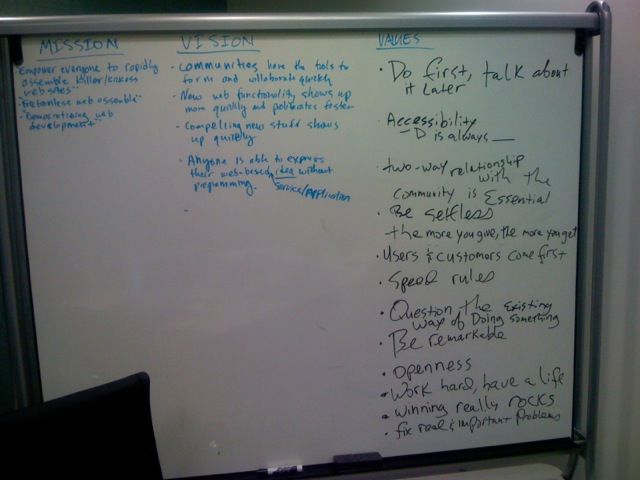 MISSION
Empower everyone to rapidly
assemble killer/kickass
websites"
"Democratizing web
development"
VISION
communities have the tools to
form and collaborate quickly
New web functionality shows up
more quickly and faster
Compelling new stuff shows
up quickly
Anyone is able to express
their web-based idea without
programming. Service/Application
VALUES
Do first, talk about
it later
Accessibility
D is always
two-way relationship
with the
community is Essential
Be selfless
the more you give, the more you get
Users & customers come first
Speed rules
Question the existing
way of Doing something
Be remarkable
Openness
Work hard, have a life
winning really rocks
fix real & important problems